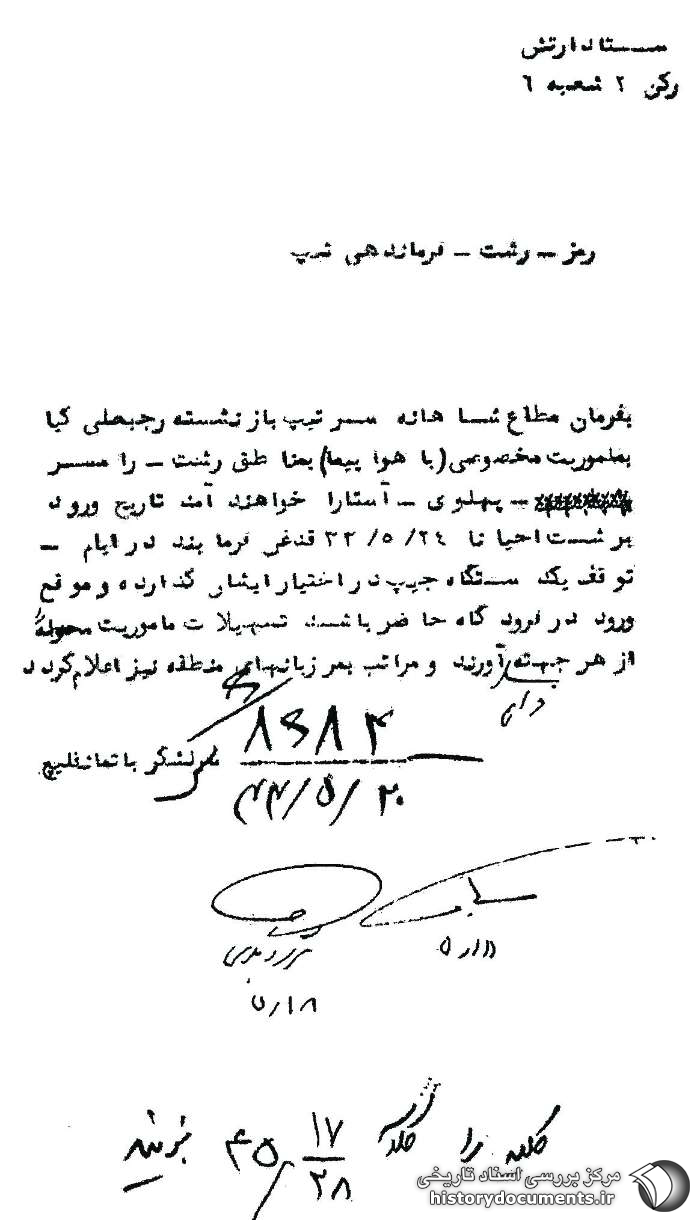 ستاد ارتش
رکن ۲ شعبه ٦
رمز ــ رشت ــ فرماندهی تیپ
بفرمان مطاع شاهانه سرتیپ بازنشسته رجبعلی کیا
بماموریت مخصوصی (با هوا پیما) بمناطق رشت ــ رامسر
ــ پهلوی ــ آستارا خواهند آمد تاریخ ورود
برشت احیانا ۳۳/۵/۲٤ قدغن فرمایند در ایام ــ
توقف یک دستگاه جیپ در اختیار ایشان گذارده و موقع
ورود در فرودگاه حاضر باشند تسهیلات ماموریت محوله
از هر جهت بعمل آورند و مراتب بمرزبانیهای منطقه نیز اعلام گردد
سرلشگر باتمانقلیچ
۳۳/۵/۲۰
۵/۱۸
را ۱۷
۲۸
مرکز بررسی اسناد تاریخی
historydocuments.ir